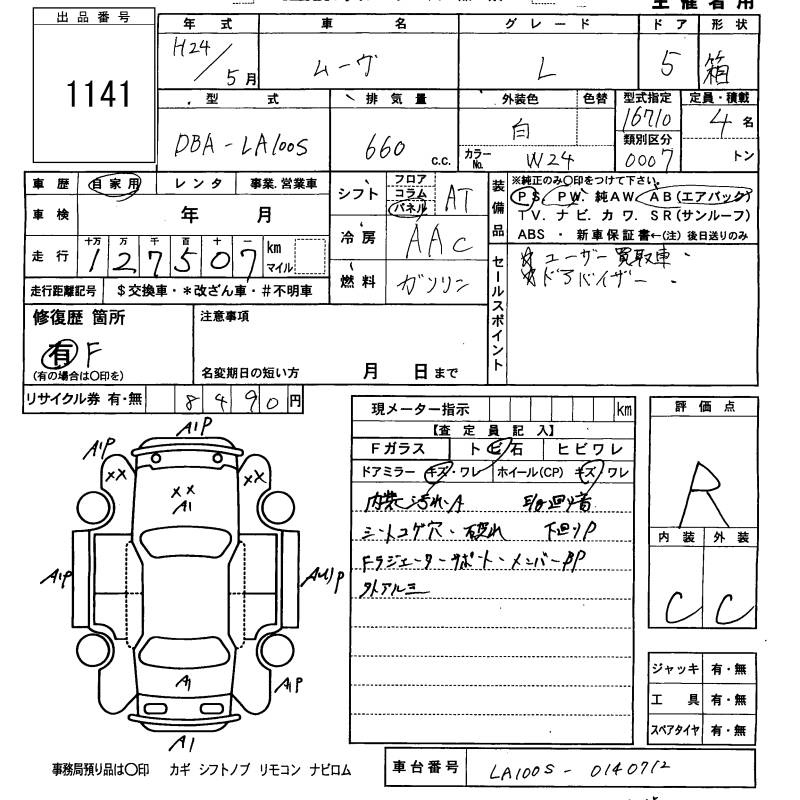 出品番号
1141
年式 車名 グレード ドア 形状
H24/5月 ムーヴ L 5 箱
型式 排気量 外装色 色替 型式指定 定員・積載
DBA-LA100S 660 C.C. 白 16710 4名
カラーNo. W24 類別区分 0007 トン
車歴 自家用 レンタ 事業.営業車
車検 年 月
走行 十万 万 千 百 十 一 km マイル
127507
走行距離記号 $交換車・*改ざん車・#不明車
シフト フロア コラム パネル AT
冷房 AAC
燃料 ガソリン
装備品 ※純正のみ〇印をつけて下さい。
PS. PW. 純AW. AB(エアバック)
TV. ナビ. カワ. SR(サンルーフ)
ABS ・ 新車保証書←(注)後日送りのみ
セールスポイント
☆ユーザー買取車・
☆ドアバイザー・
修復歴 箇所
有 F
(有の場合は〇印を)
注意事項
名変期日の短い方 月 日まで
リサイクル券 有・無 8490円
現メーター指示 km
【査定員記入】
Fガラス トビ石 ヒビワレ
ドアミラー キズ・ワレ ホイール(CP) キズ ワレ
内装汚れ・A
シートコゲ穴・破れ 下回りP
Fラジエーターサポート・メンバーPP
外アルミ
評価点
R
内装 外装
C C
ジャッキ 有・無
工具 有・無
スペアタイヤ 有・無
A1P
A1P
XX
XX
XX
A1
A1P
A1
A1P
A1
事務局預り品は〇印 カギ シフトノブ リモコン ナビロム
車台番号 LA100S-0140712